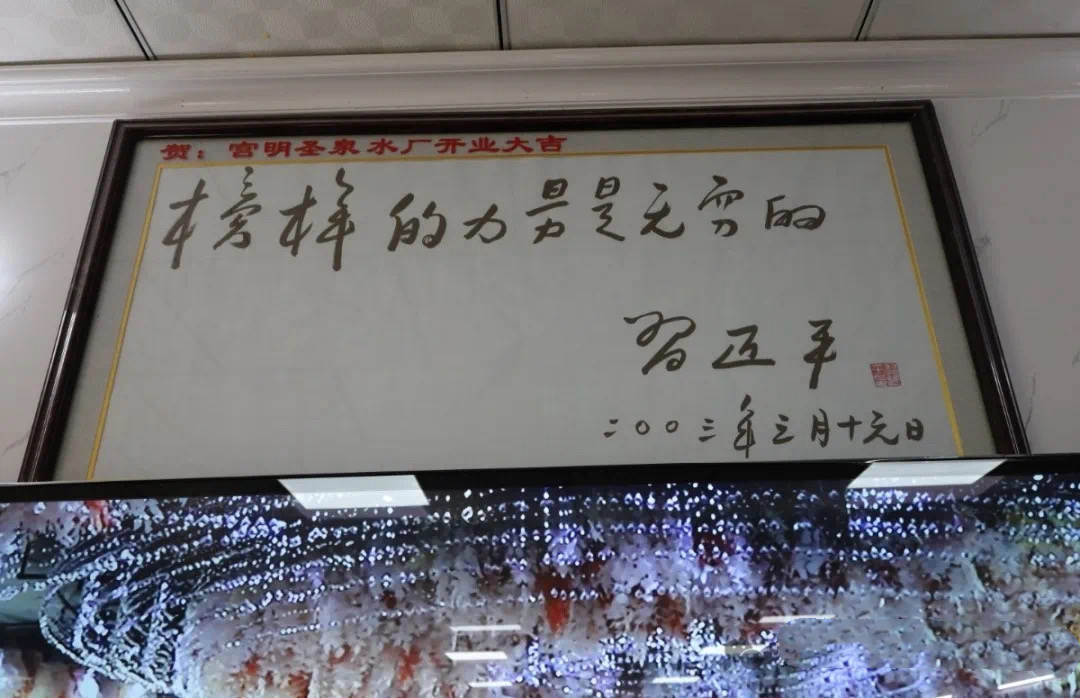 贺：宫明圣泉水厂开业大吉
榜样的力量是无穷的
习近平
二〇〇三年三月十六日